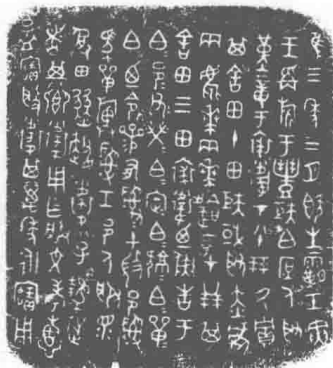 隹三年三月既生霸壬寅
王爯旂于豐矩白庶人取
堇章于裘衛才八十朋氒貯
其舍田十田矩或取赤虎
兩兩一才廿朋其
舍田三田裘衛乃彘告于
白邑父榮白定白白單
白白邑父榮白定白白單
白乃令參有司司土微邑司
馬單司工邑人服眔
受田燹趞衛小子逆
者其鄉衛用乍朕文考惠
孟寶般衛其萬年永寶用